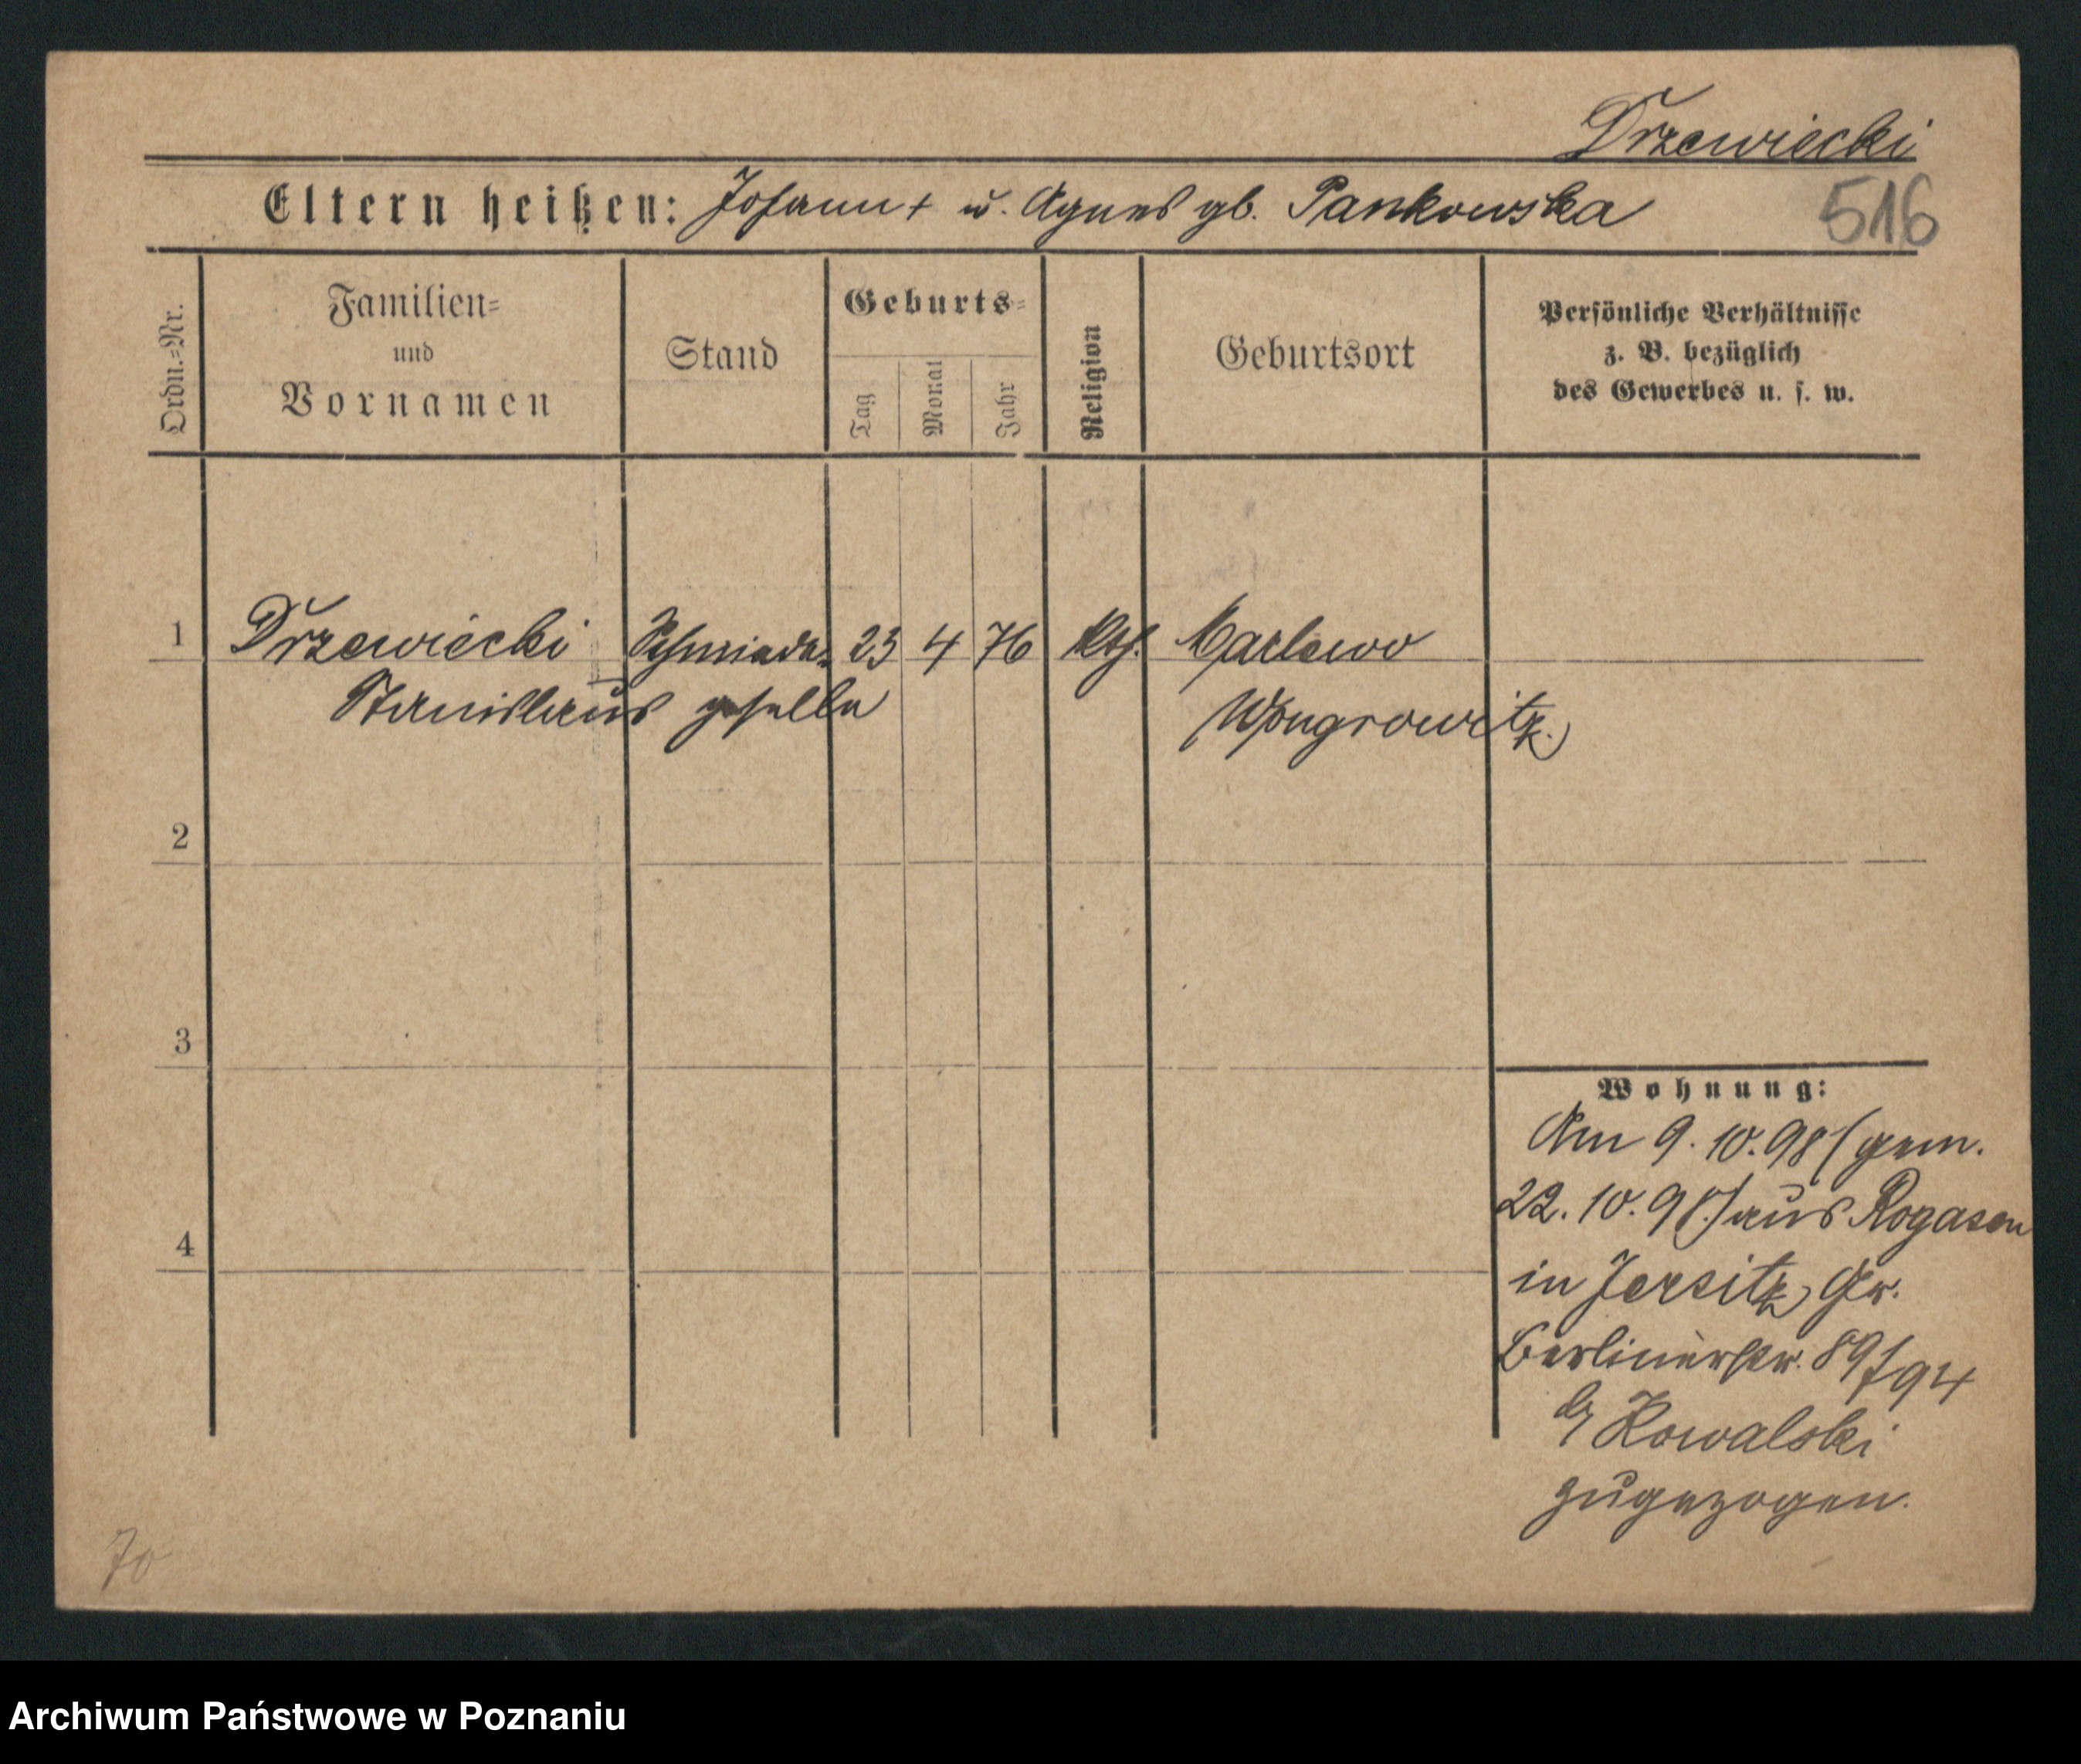 Drzewiecki
Eltern heißen: Johann + u. Agnes gb. Pankowska
516
Ordn.-Nr.
Familien-
und
Vornamen
Stand
Geburts-
Tag
Monat
Jahr
Religion
Geburtsort
Persönliche Verhältnisse
z. B. bezüglich
des Gewerbes u. s. w.
1 Drzewiecki Schmiede- 23 4 76 kth. Marlewo
Stanislaus geselle (Wongrowitz.)
2
3
4
Wohnung:
Am 9. 10. 98 (gem.
22. 10. 98.) aus Rogasen
in Jersitz, Gr.
Berlinerstr. 89/94
b/ Kowalski
zugezogen.
70
Archiwum Państwowe w Poznaniu